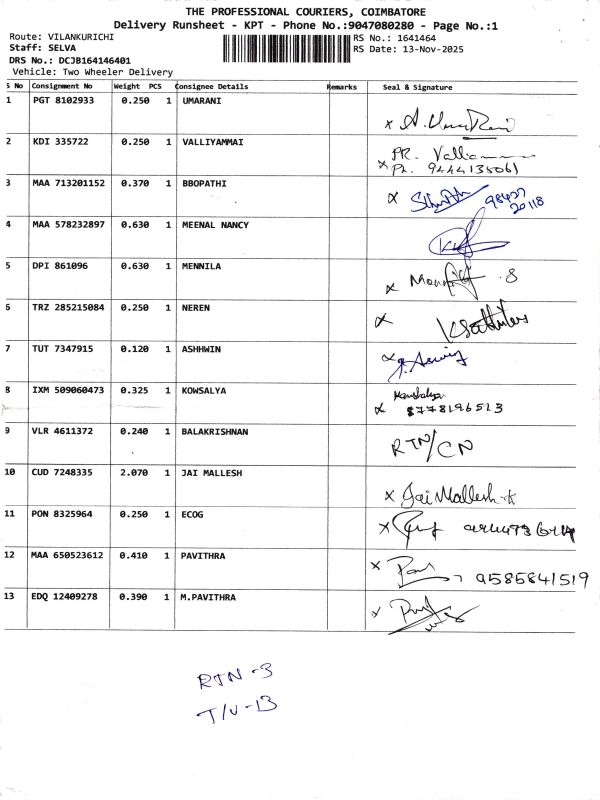 THE PROFESSIONAL COURIERS, COIMBATORE
Delivery Runsheet - KPT - Phone No.:9047080280 - Page No.:1
Route: VILANKURICHI
Staff: SELVA
DRS No.: DCJB164146401
Vehicle: Two Wheeler Delivery
RS No.: 1641464
RS Date: 13-Nov-2025
S No Consignment No Weight PCS Consignee Details Remarks Seal & Signature
1 PGT 8102933 0.250 1 UMARANI x
2 KDI 335722 0.250 1 VALLIYAMMAI PR.
x Ph. 9444135061
3 MAA 713201152 0.370 1 BBOPATHI x 98427
20118
4 MAA 578232897 0.630 1 MEENAL NANCY
5 DPI 861096 0.630 1 MENNILA x
6 TRZ 285215084 0.250 1 NEREN x
7 TUT 7347915 0.120 1 ASHHWIN x
8 IXM 509060473 0.325 1 KOWSALYA
x 8778196513
9 VLR 4611372 0.240 1 BALAKRISHNAN RTN/CN
10 CUD 7248335 2.070 1 JAI MALLESH x Jai Mallesh-K
11 PON 8325964 0.250 1 ECOG x
12 MAA 650523612 0.410 1 PAVITHRA x 9585841519
13 EDQ 12409278 0.390 1 M.PAVITHRA x
RTN -3
T/V -13